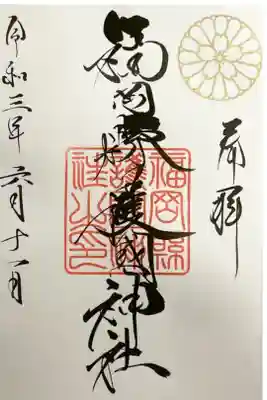 奉拝
福岡縣護國神社
令和三年六月十一日
福岡縣
護國神
社之印